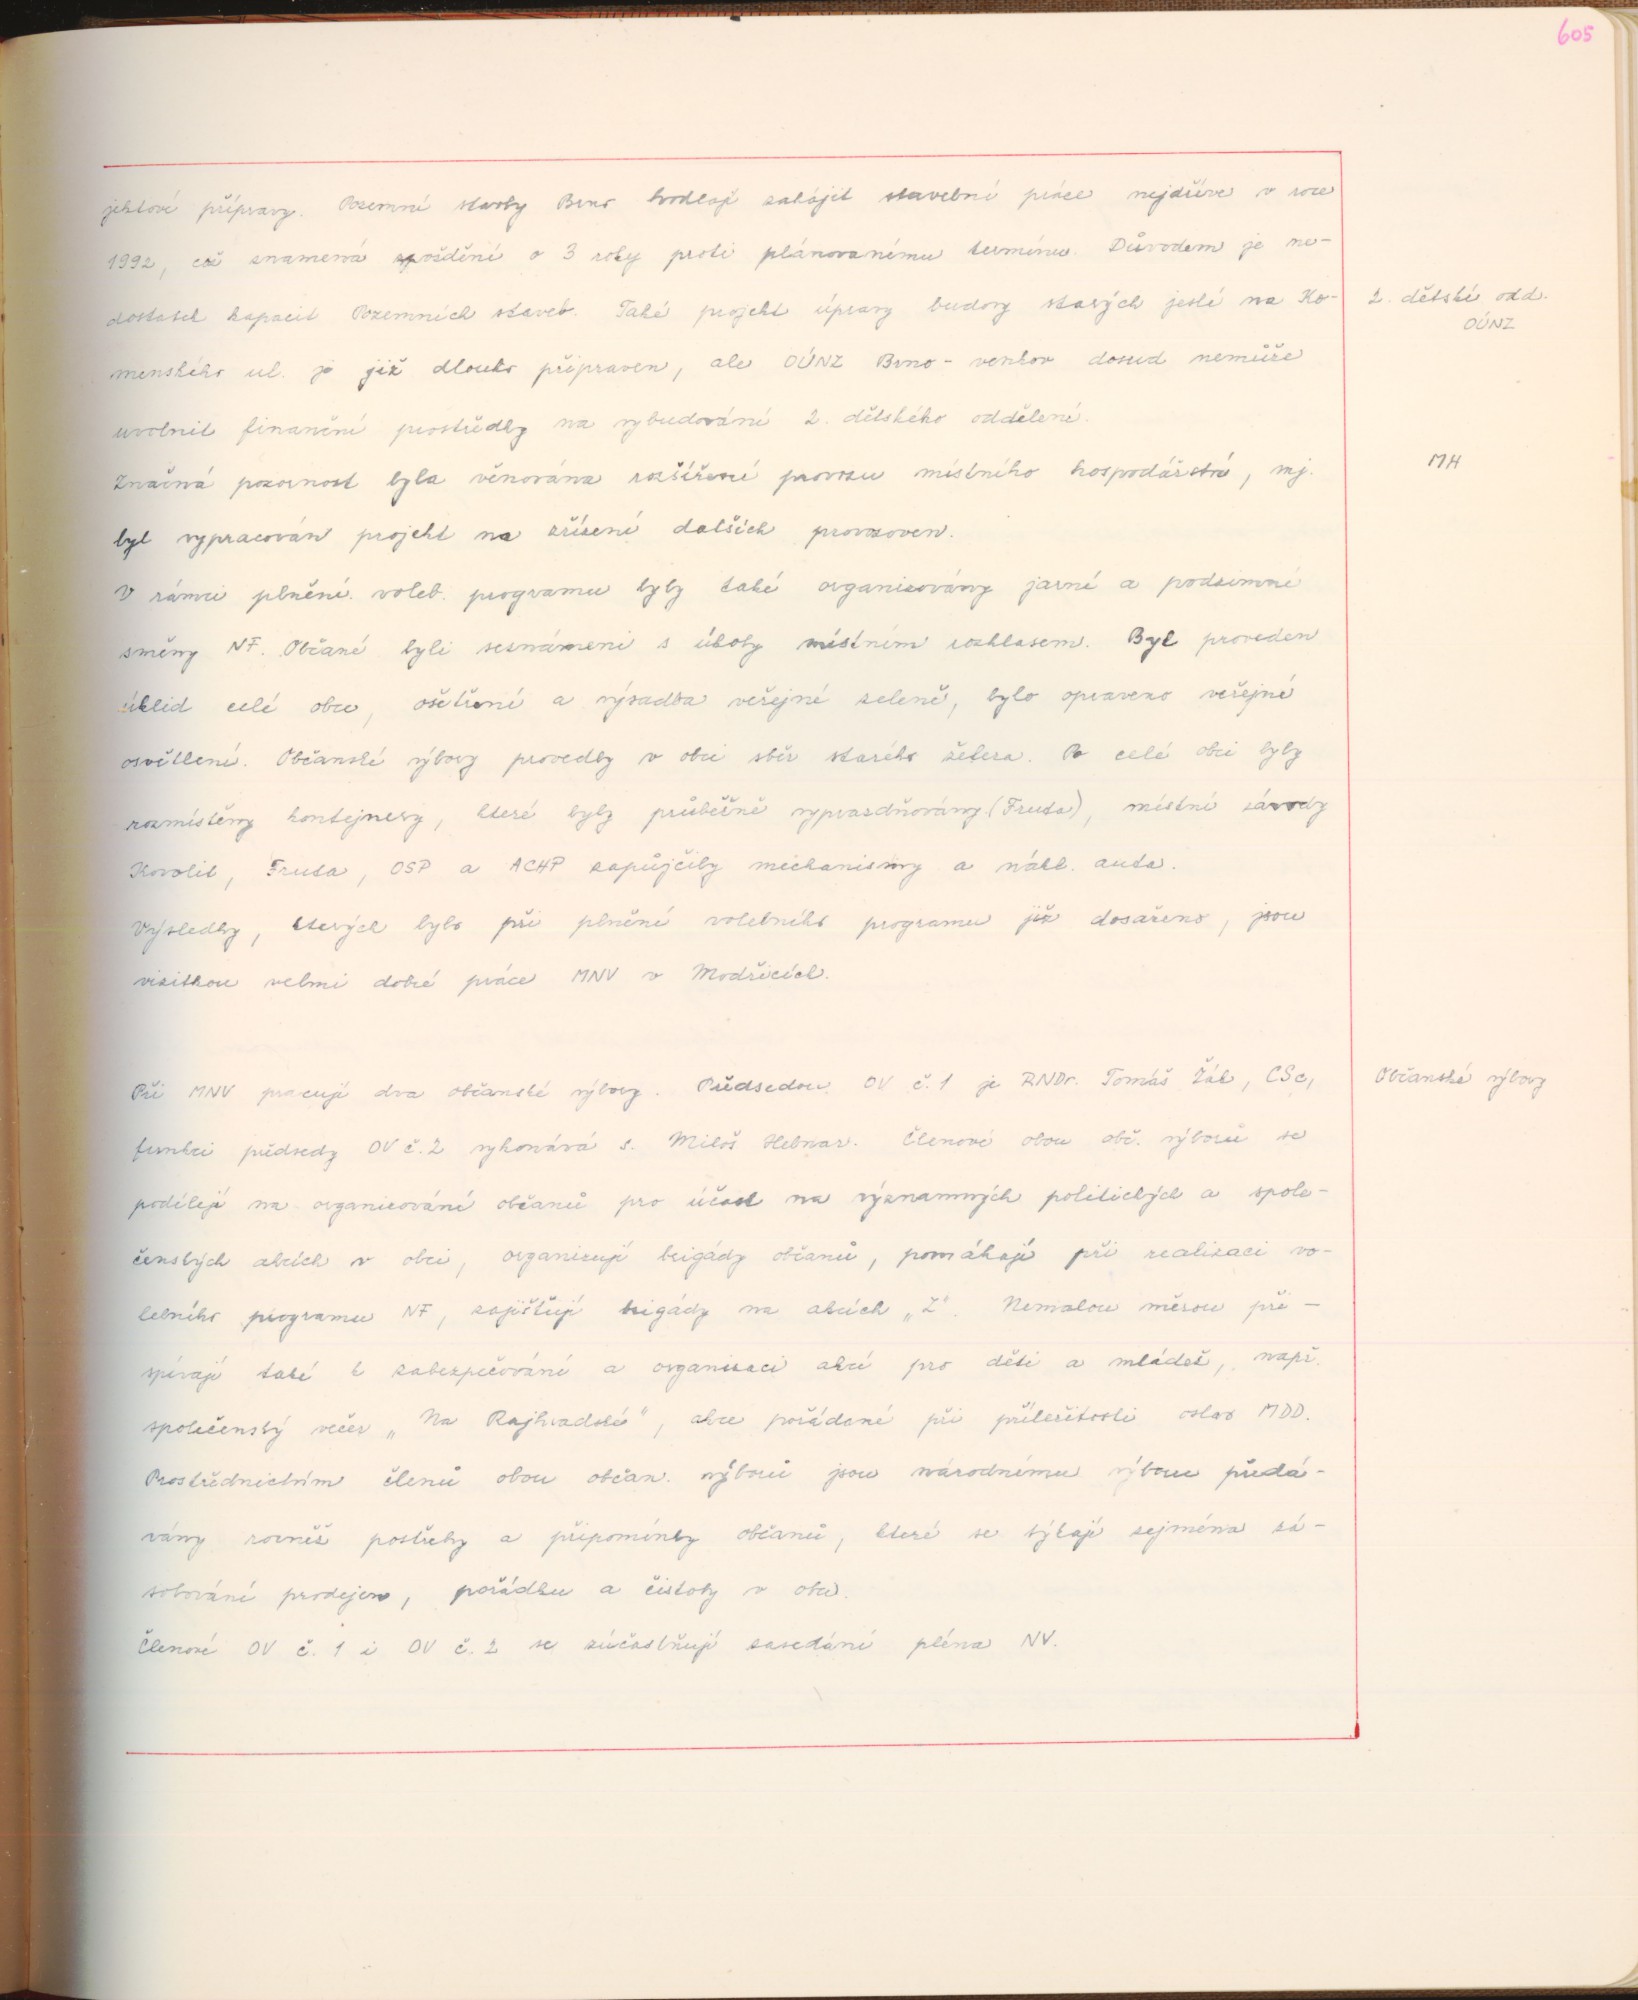 605
jektové přípravy. Pozemní stavby Brno hodlají zahájit stavební práce nejdříve v roce
1992, což znamená zpoždění o 3 roky proti plánovanému termínu. Důvodem je ne-
dostatek kapacit Pozemních staveb. Také projekt úpravy budovy starých jeslí na Ko-
2. dětské odd.
OÚNZ
menského ul. je již dlouho připraven, ale OÚNZ Brno - venkov dosud nemůže
uvolnit finanční prostředky na vybudování 2. dětského oddělení.
Značná pozornost byla věnována rozšíření provozu místního hospodářství, mj.
MH
byl vypracován projekt na zřízení dalších provozoven.
V rámci plnění voleb. programu byly také organizovány jarní a podzimní
směny NF. Občané byli seznámeni s úkoly místním rozhlasem. Byl proveden
úklid celé obce, ošetření a výsadba veřejné zeleně, bylo opraveno veřejné
osvětlení. Občanské výbory provedly v obci sběr starého železa. Po celé obci byly
rozmístěny kontejnery, které byly průběžně vyprazdňovány (Fruta), místní závody
Kovolit, Fruta, OSP a ACHP zapůjčily mechanismy a nákl. auta.
Výsledky, kterých bylo při plnění volebního programu již dosaženo, jsou
vizitkou velmi dobré práce MNV v Modřicích.
Při MNV pracují dva občanské výbory. Předsedou OV č. 1 je RNDr. Tomáš Žák, CSc,
Občanské výbory
funkci předsedy OV č. 2 vykonává s. Miloš Hebnar. Členové obou obč. výborů se
podílejí na organizování občanů pro účast na významných politických a spole-
čenských akcích v obci, organizují brigády občanů, pomáhají při realizaci vo-
lebního programu NF, zajišťují brigády na akcích „Z". Nemalou měrou při -
spívají také k zabezpečování a organizaci akcí pro děti a mládež, např.
společenský večer „Na Rajhradské", akce pořádané při příležitosti oslav MDD.
Prostřednictvím členů obou občan. výborů jsou národnímu výboru předá-
vány rovněž postřehy a připomínky občanů, které se týkají zejména zá-
sobování prodejen, pořádku a čistoty v obci.
Členové OV č. 1 i OV č. 2 se zúčastňují zasedání pléna NV.